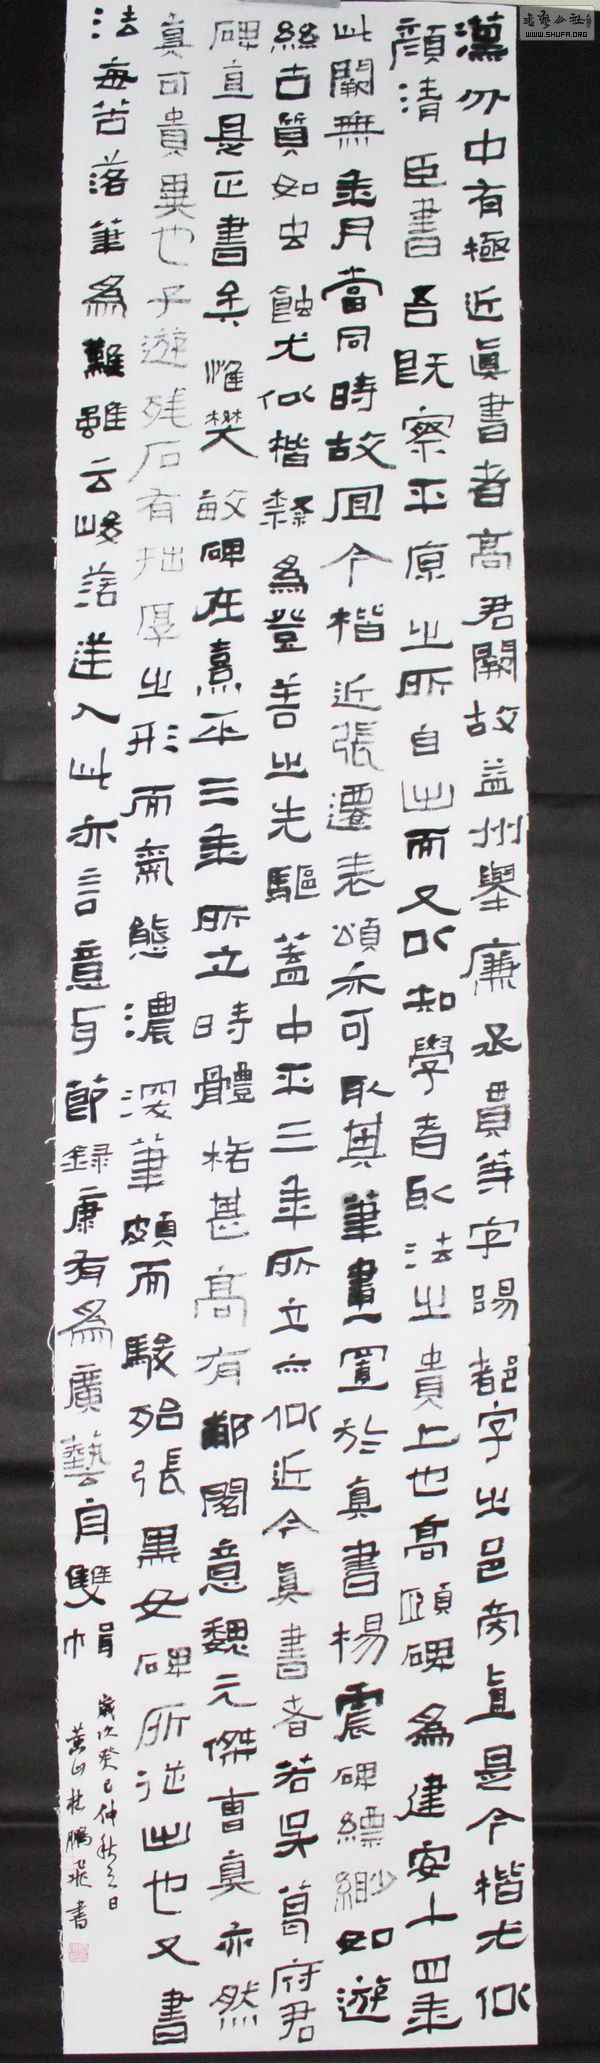 漢分中有極近真書者高君闕故益州舉廉丞貫等字陽都字之邑旁直是今楷尤似
顔清臣書吾既察平原之所自出而又以知學者取法之貴上也高頤碑為建安十四年
此闕無年月當同時故同今楷近張遷表頌亦可取其筆畫置於真書楊震碑縹緲如遊
絲古質如虫蝕尤似楷隸為登善之先驅蓋中平三年所立亦似近今真書者若吴葛府君
碑直是正書矣惟樊敏碑在熹平三年所立時體格甚高有鄐閣意魏元傑曹真亦然
真可貴異也子遊残石有拙厚之形而氣態濃深筆頗而駿殆張黑女碑所從出也又書
法每苦落筆為難雖云峻落逆入此亦言意耳節録康有為廣藝舟雙楫
歲次癸巳仲秋之日
黄山杜鵬飛書
书艺公社
WWW.SHUFA.ORG